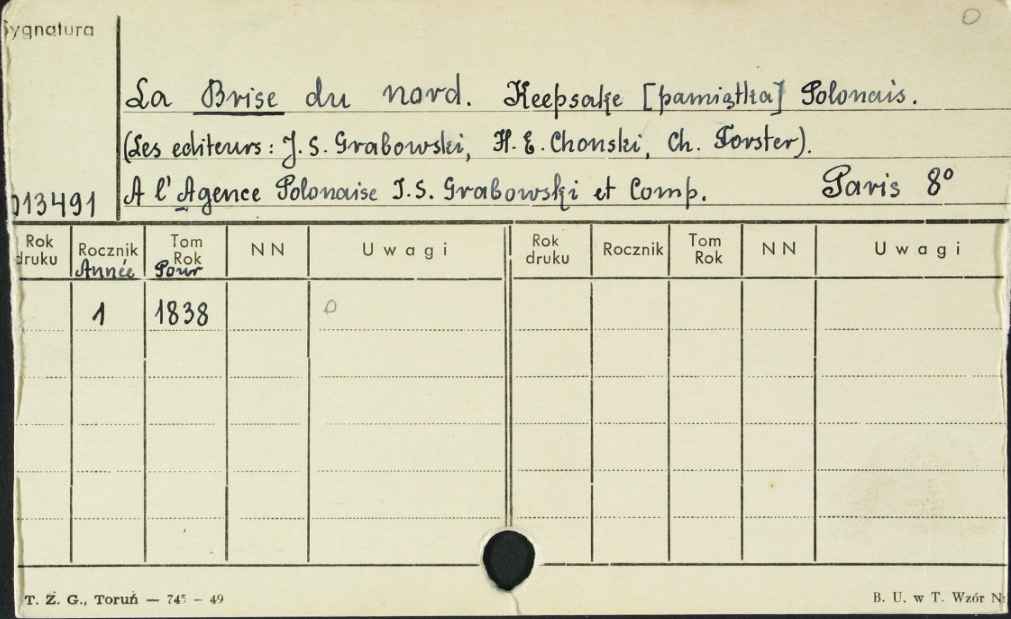 Sygnatura
La Brise du nord. Keepsake [pamiątka] Polonais.
(Les editeurs: J. S. Grabowski, H. E. Chonski, Ch. Forster).
A l'Agence Polonaise J. S. Grabowski et Comp. Paris 8º
013491
Rok druku Rocznik Tom Rok NN Uwagi Rok druku Rocznik Tom Rok NN Uwagi
Année Pour
1 1838
T. Z. G., Toruń — 745 — 49 B. U. w T. Wzór